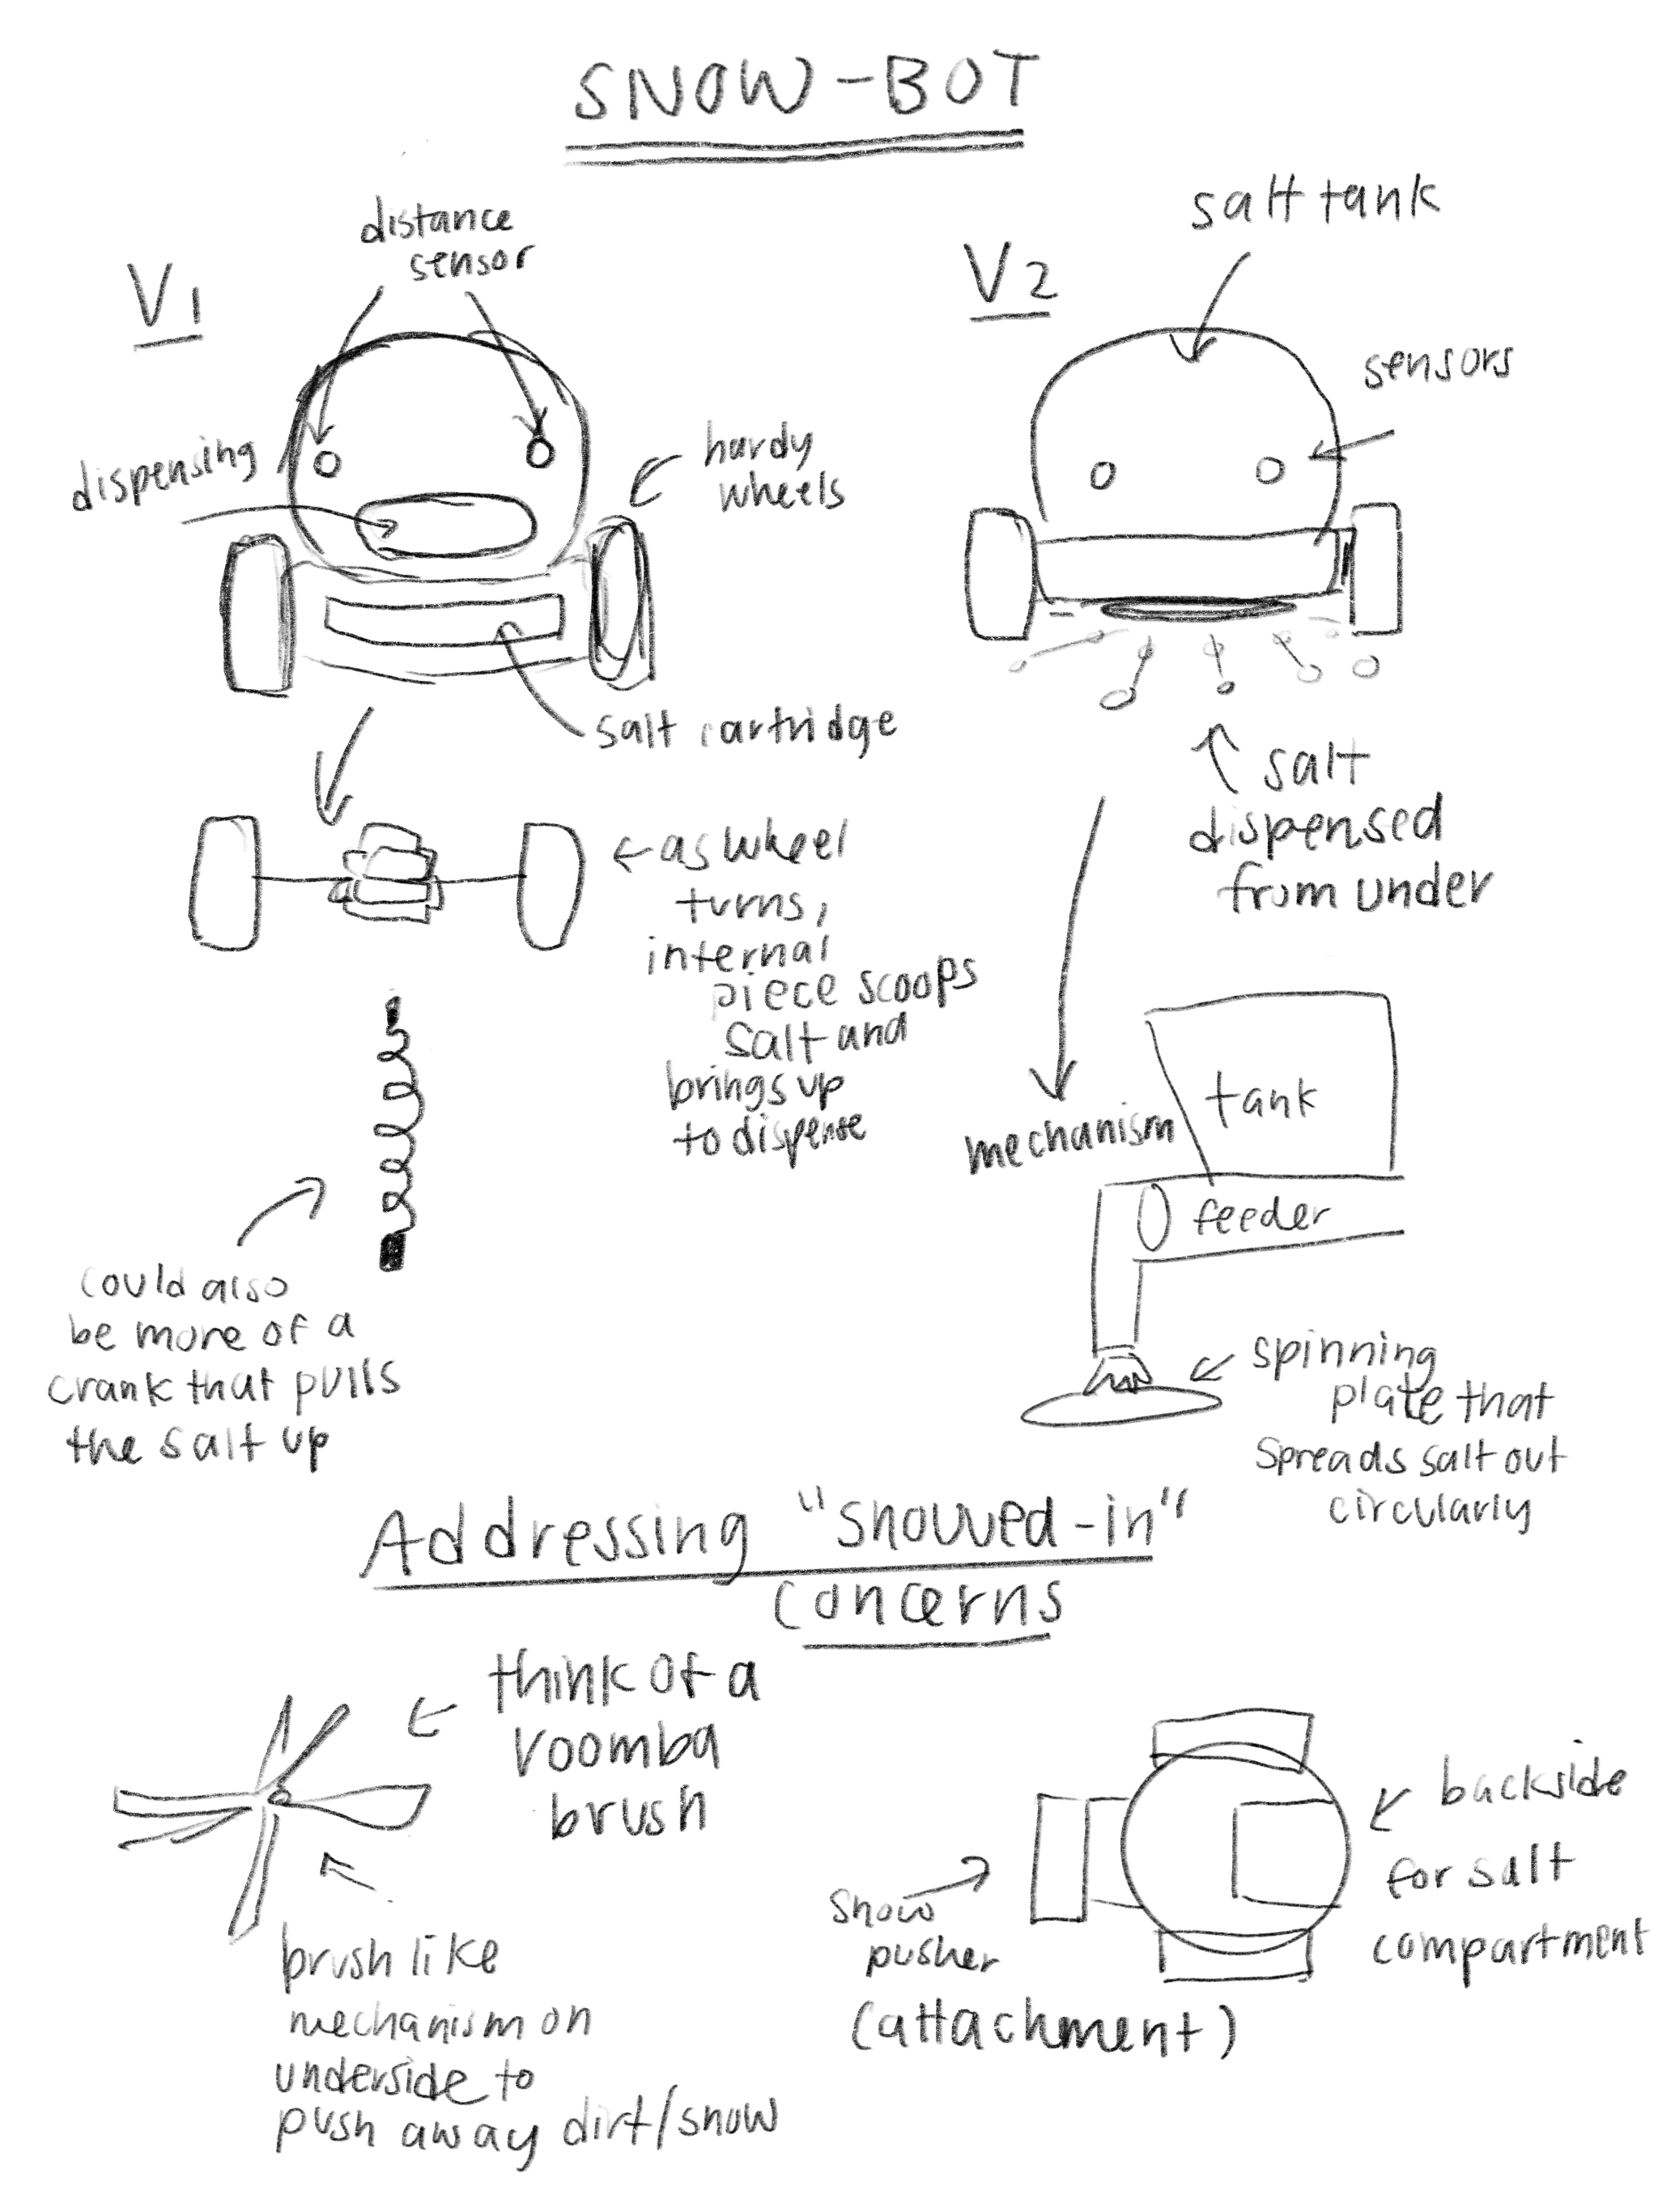 SNOW-BOT
V1
distance
sensor
dispensing
hardy
wheels
salt cartridge
← as wheel
turns,
internal
piece scoops
salt and
brings up
to dispense
could also
be more of a
crank that pulls
the salt up
V2
salt tank
sensors
salt
dispensed
from under
mechanism
tank
feeder
spinning
plate that
spreads salt out
circularly
Addressing "snowed-in"
concerns
think of a
roomba
brush
brush like
mechanism on
underside to
push away dirt/snow
snow
pusher
(attachment)
backside
for salt
compartment